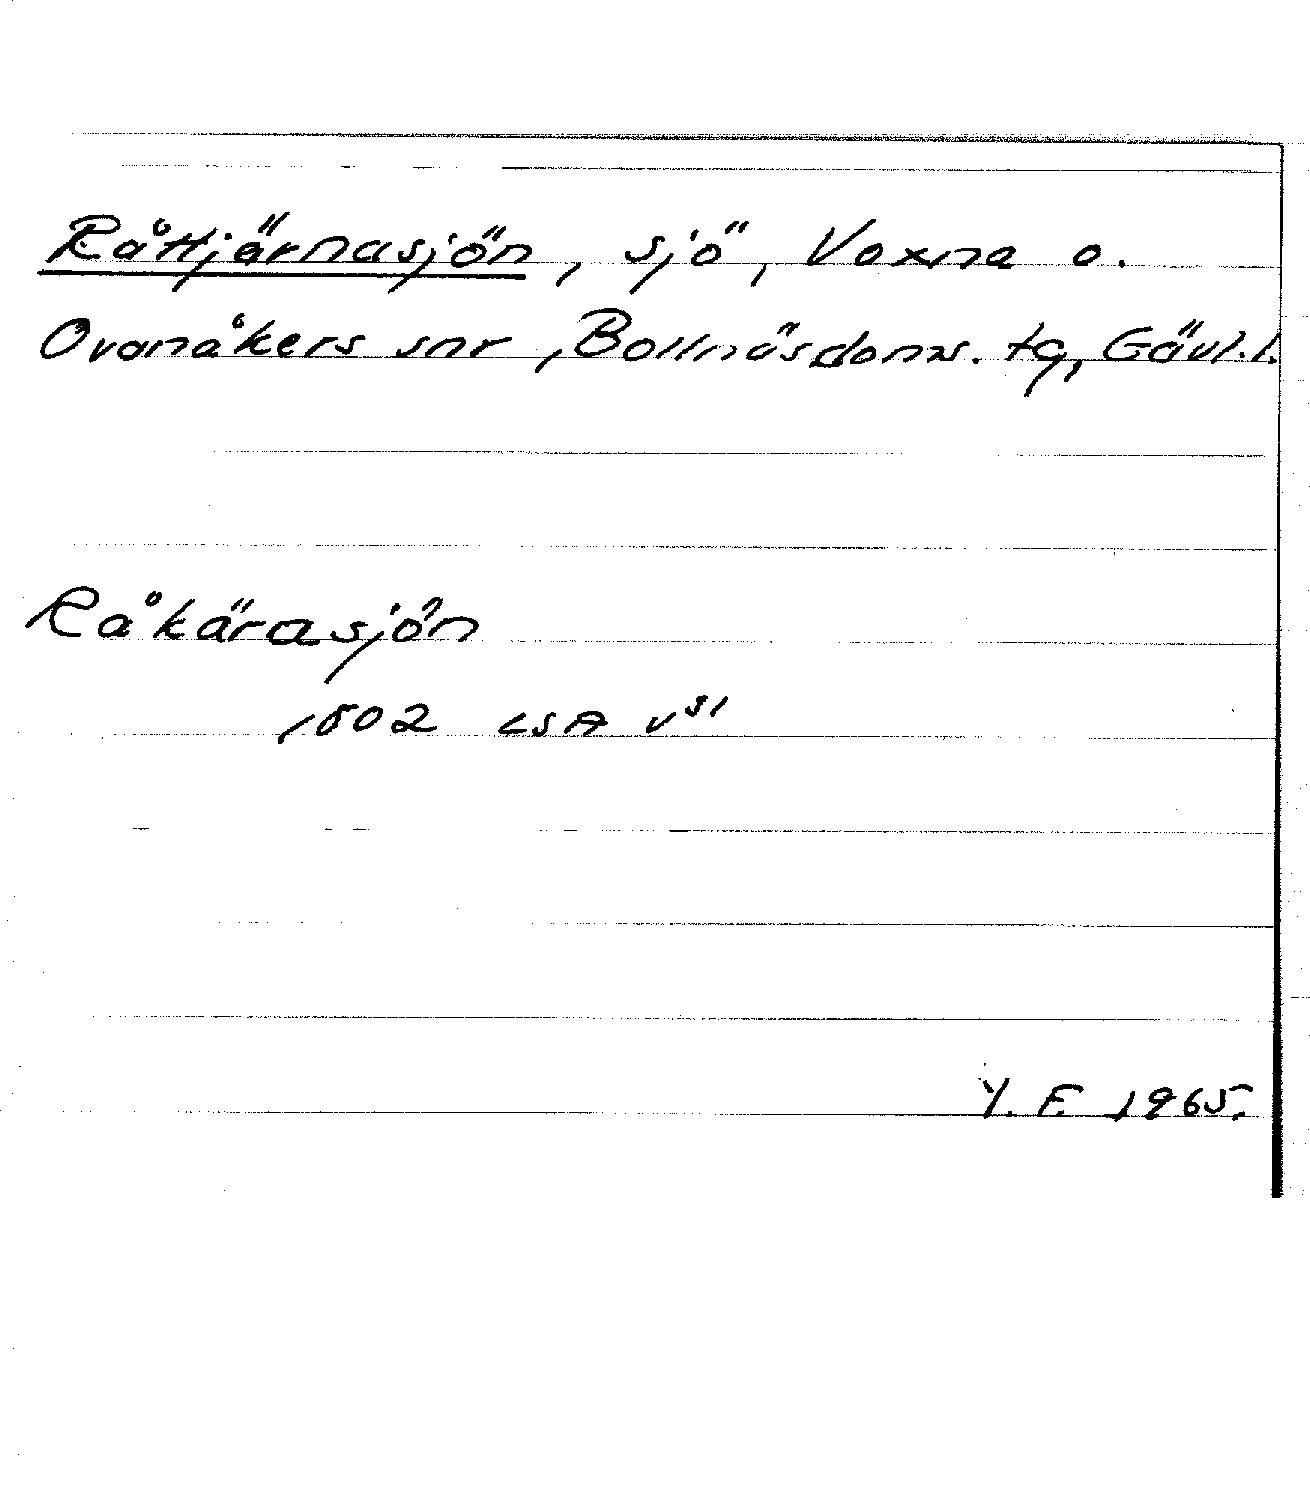 Råttjärnasjön, sjö, Voxna o.
Ovanåkers snr, Bollnäs doms. tg, Gävl. l.
Råkärasjön
1802 LSA v 31
Y. F. 1965.